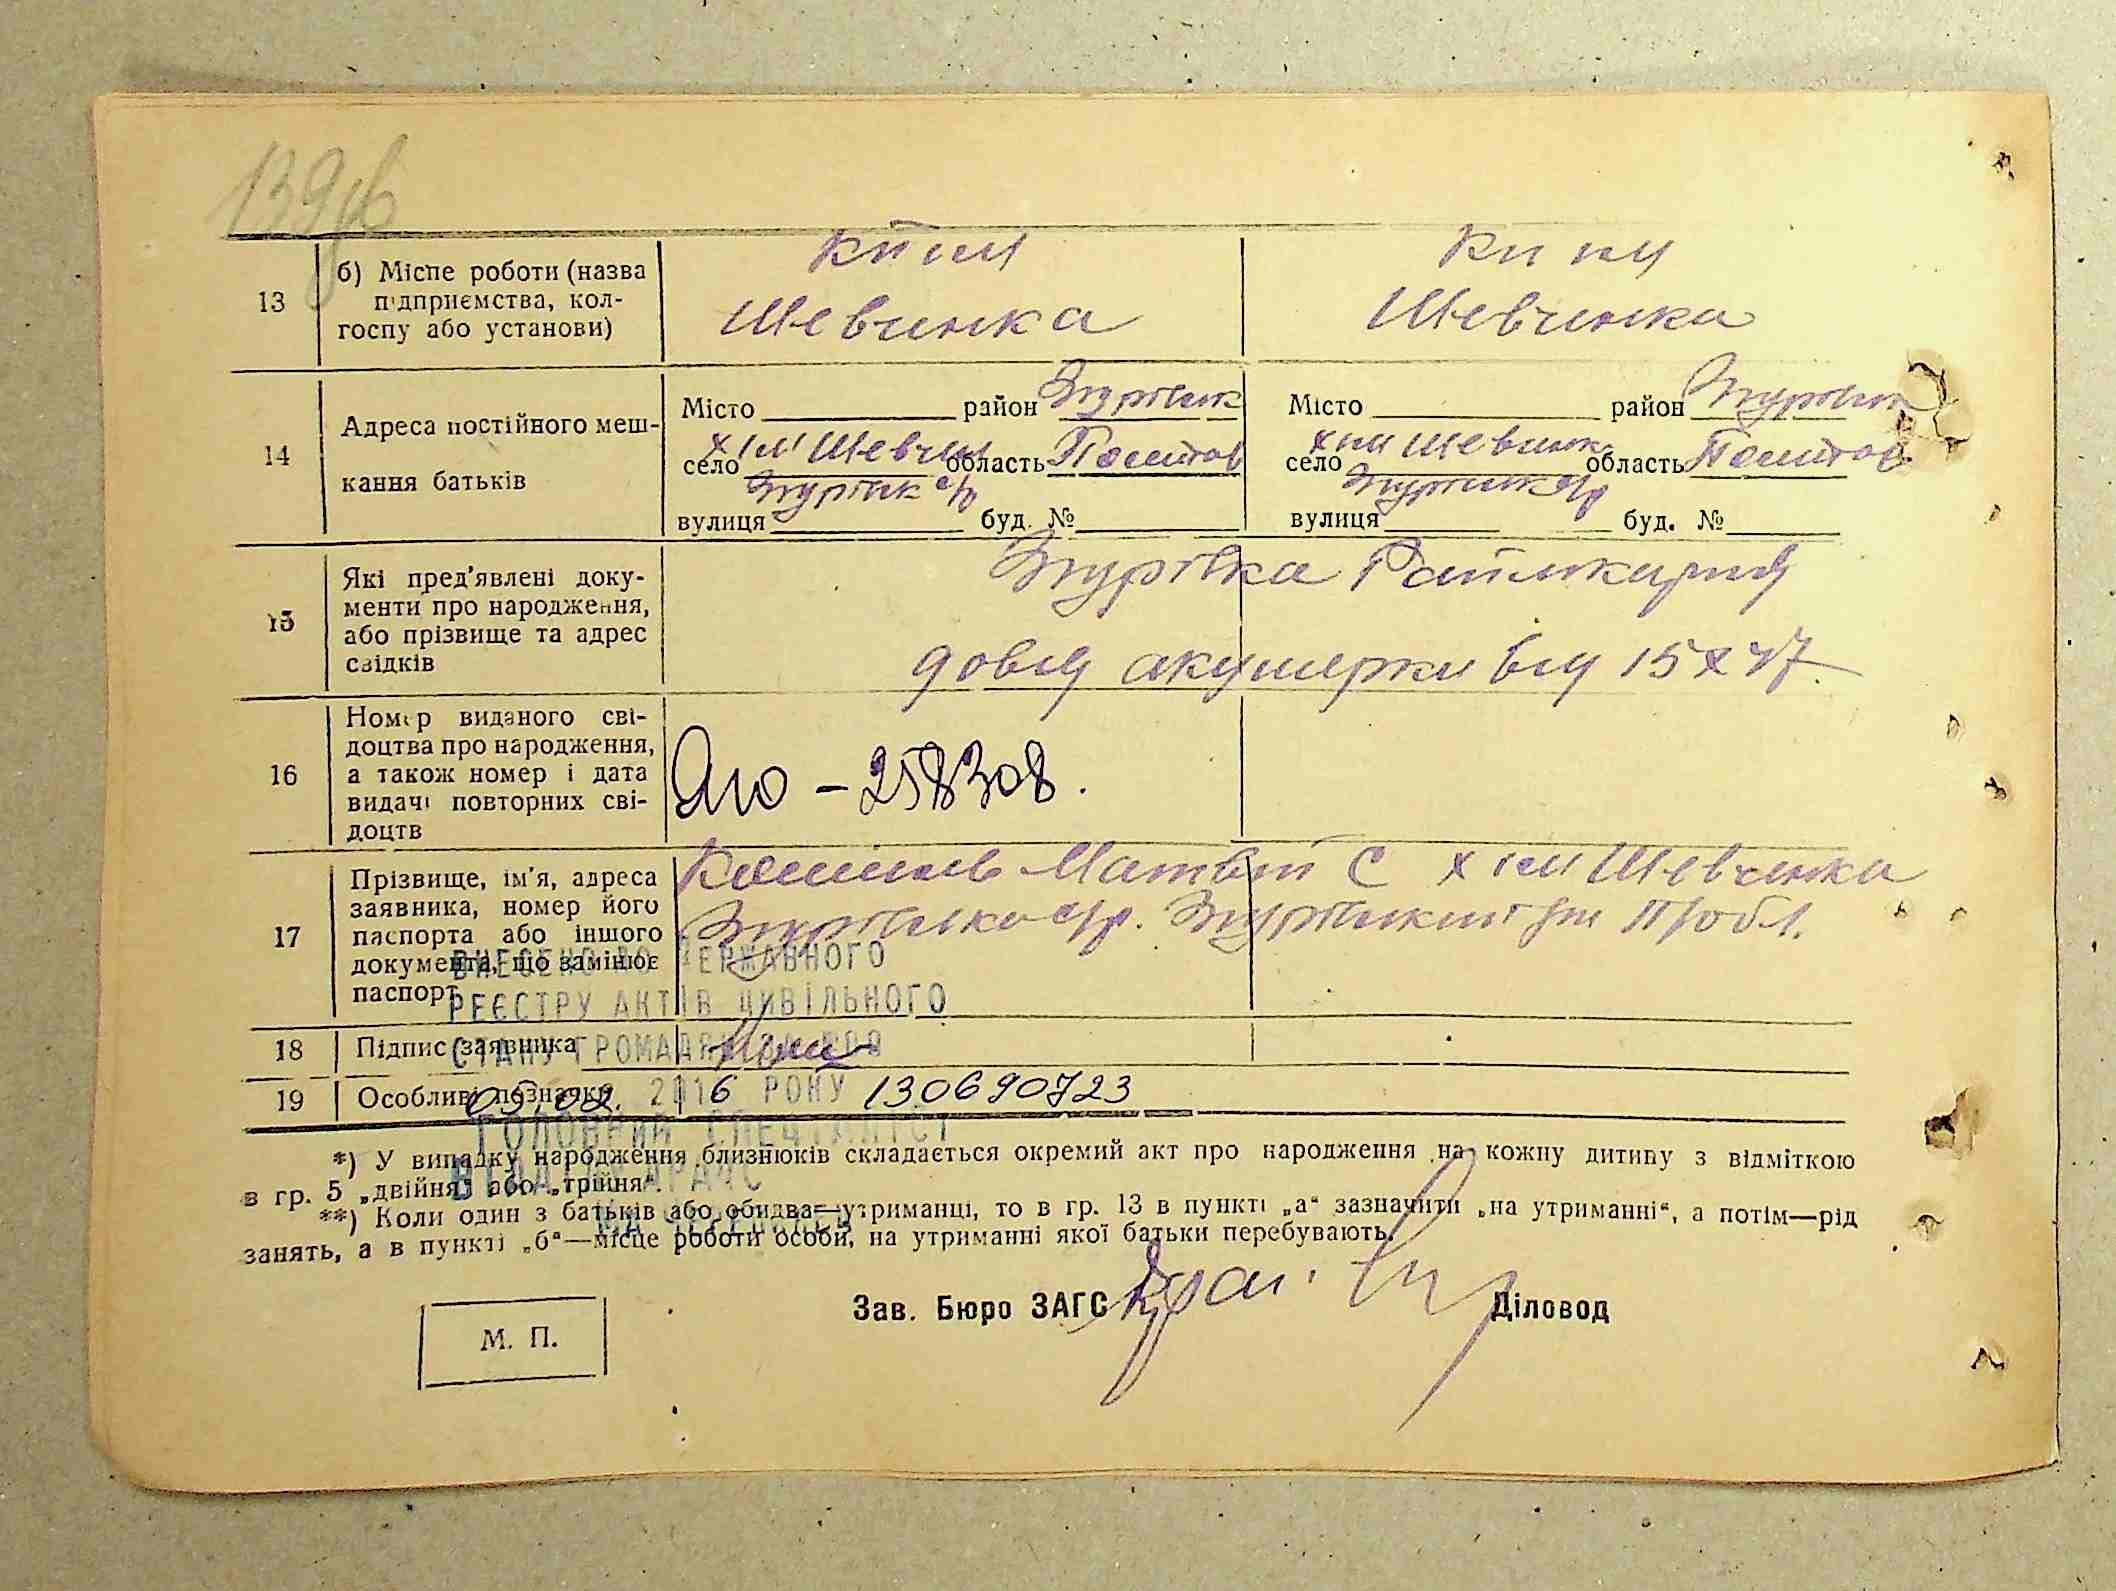 139зв
13
б) Місце роботи (назва
підприємства, кол-
госпу або установи)
Шевченка
Шевченка
14
Адреса постійного меш-
кання батьків
Місто район Згурівськ
х ім Шевчен область Полтав
село
Згурівськ с/р
вулиця буд. №
Місто район Згурівськ
х ім Шевченк область Полтав
село
Згурівськ с/р
вулиця буд. №
15
Які пред'явлені доку-
менти про народження,
або прізвище та адрес
свідків
Згурівка Райлікарня
довід акушерки від 15 X 47.
16
Номер виданого сві-
доцтва про народження,
а також номер і дата
видачі повторних сві-
доцтв
ЯЮ – 258308.
17
Прізвище, ім'я, адреса
заявника, номер його
паспорта або іншого
документа, що замінює
паспорт
Матвій С х ім Шевченка
18
Підпис заявника
19
Особливі позначки
ВНЕСЕНО ДО ДЕРЖАВНОГО
РЕЄСТРУ АКТІВ ЦИВІЛЬНОГО
СТАНУ ГРОМАДЯН ЗА №
05.02. 2016 РОКУ 130690723
ГОЛОВНИЙ СПЕЦІАЛІСТ
*) У випадку народження близнюків складається окремий акт про народження на кожну дитину з відміткою
в гр. 5 „двійня“ або „трійня“.
**) Коли один з батьків або обидва—утриманці, то в гр. 13 в пункті „а“ зазначити „на утриманні“, а потім—рід
занять, а в пункті „б“—місце роботи особи, на утриманні якої батьки перебувають.
Зав. Бюро ЗАГС Діловод
М. П.